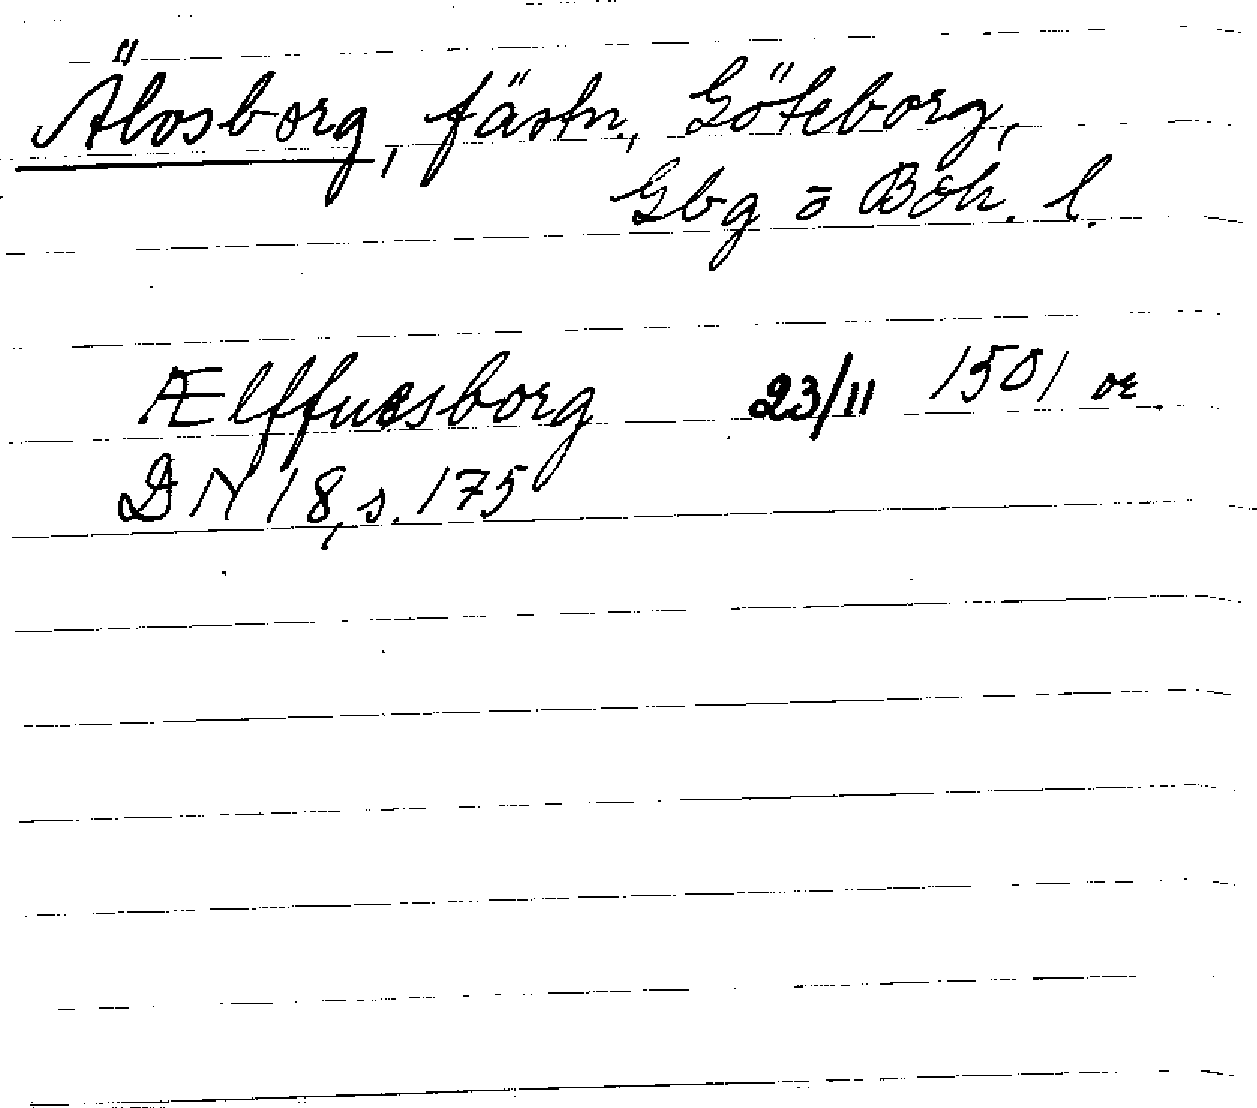 Älvsborg, fästn., Göteborg,
Gbg o Boh. l.
Ælffuesborg 23/11 1501 or.
DN 18, s. 175